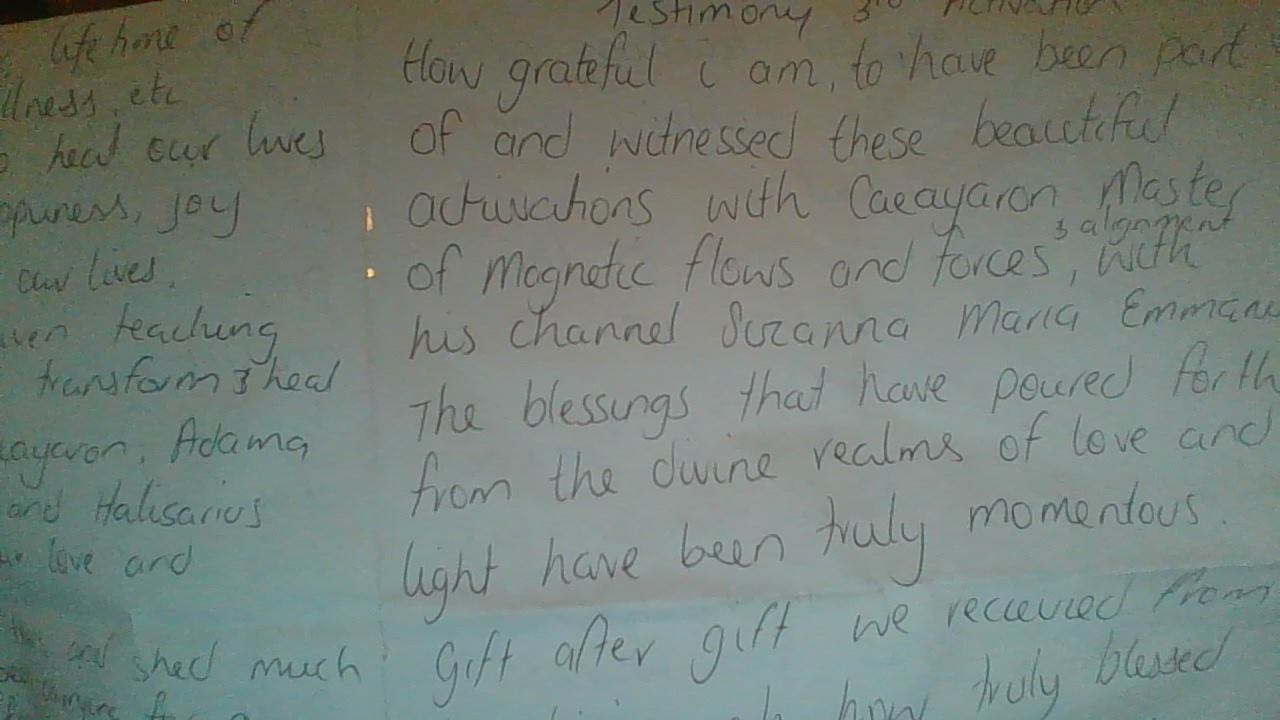 life time of
llness, etc
heal our lives
ppiness, joy
our lives.
ven teaching
transform & heal
eayaron, Adama
and Halisarius
love and
and shed much
Testimony 3rd Activation
How grateful i am, to have been part
of and witnessed these beautiful
activations with Caeayaron Master
of Magnetic flows and forces & alignment, with
his channel Suzanna Maria Emmanu
The blessings that have poured forth
from the divine realms of love and
light have been truly momentous.
Gift after gift we received from
how truly blessed